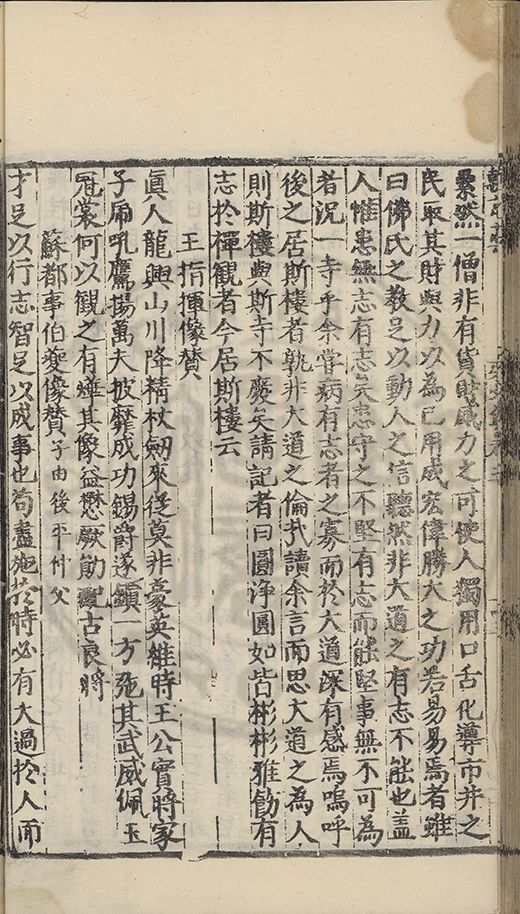 纍然一僧非有貨財威力之可使人獨用口舌化導市井之
民取其財與力以為已用成宏偉勝大之功若易易焉者雖
曰佛氏之教足以動人之信聽然非大道之有志不能也蓋
人惟患無志有志矣患守之不堅有志而能堅事無不可為
者況一寺乎余嘗病有志者之寡而於大道深有感焉嗚呼
後之居斯樓者孰非大道之倫哉讀余言而思大道之為人
則斯樓與斯寺不廢矣請記者曰圓淨圓如皆彬彬雅飭有
志於禪觀者今居斯樓云
王指揮像贊
真人龍興山川降精杖劒來從莫非豪英維時王公實將家
子虓吼鷹揚萬夫披靡成功錫爵遂鎮一方弛其武威佩玉
冠裳何以觀之有燁其像益懋厥勛古良將
蘇都事伯夔像贊子由後平仲父
才足以行志智足以成事也苟盡施於時必有大過於人而